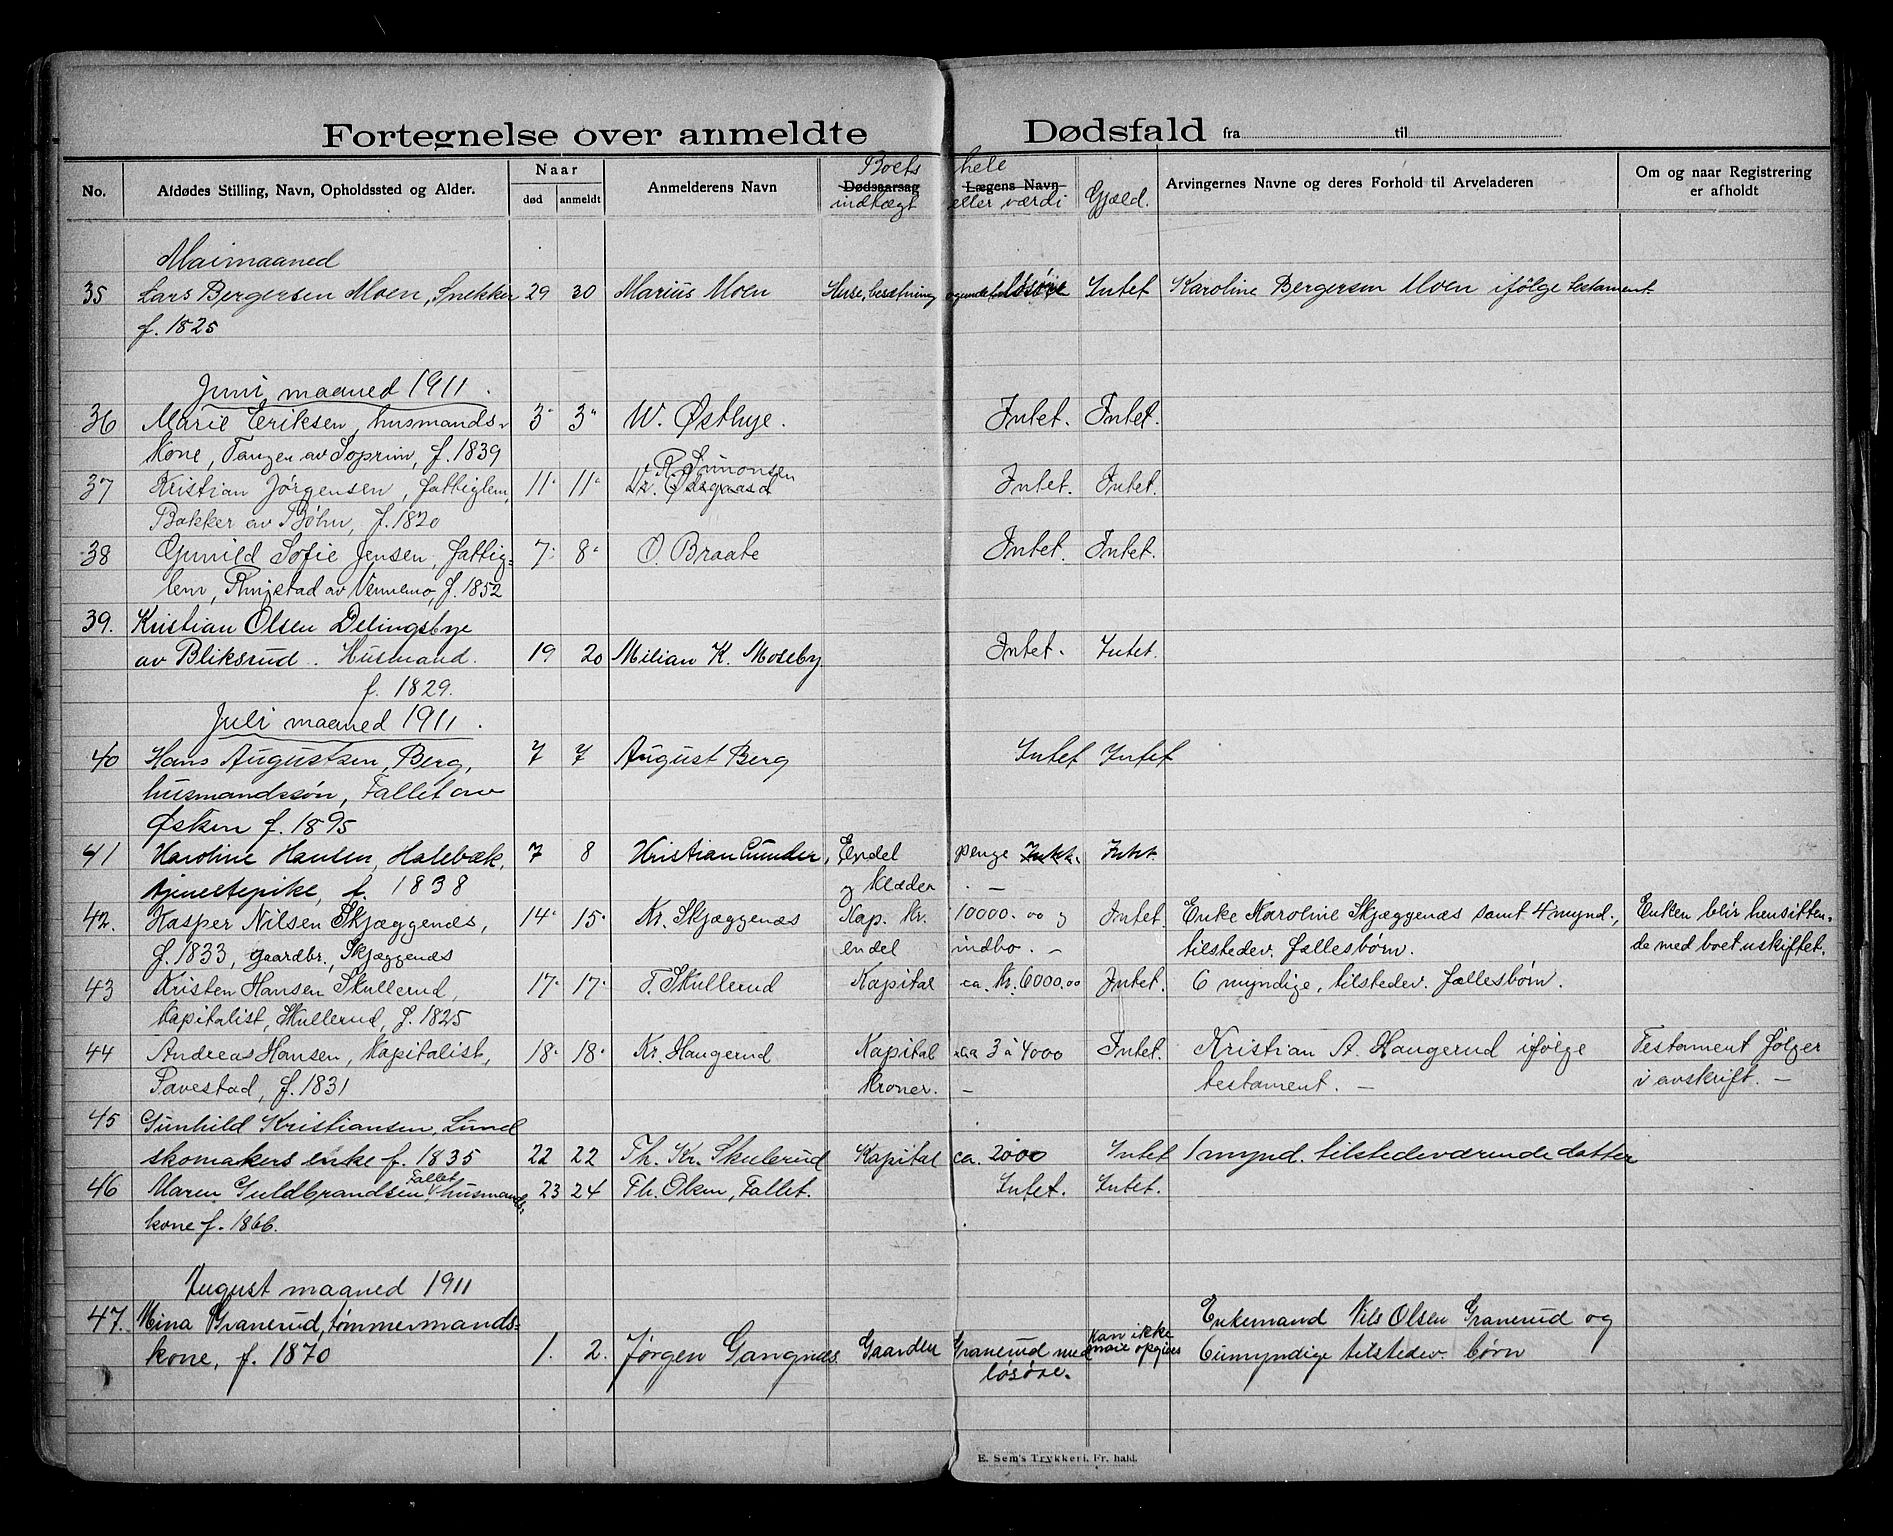 Fortegnelse over anmeldte Dødsfald fra til
No. Afdødes Stilling, Navn, Opholdssted og Alder. Naar død anmeldt Anmelderens Navn Boets hele Dødsaarsag Lægens Navn indtægt eller værdi Gjæld. Arvingernes Navne og deres Forhold til Arveladeren Om og naar Registrering er afholdt
Maimaaned
35 Lars Bergersen Moen, Snekker 29 30 Marius Moen Huse, besætning løsøre Intet Karoline Bergersen Moen ifølge testament.
f. 1825
Juni maaned 1911.
36 Marie Eriksen, husmands- 3 3 W. Østbye. Intet. Intet.
kone, Tangen av Soprim, f. 1839
R. Simonsen
37 Kristian Jørgensen, fattiglem, 11 11 Intet. Intet.
Bakker av Bøhn, f. 1820
38 Gunild Sofie Jensen, fattig- 7 8 O. Braate Intet. Intet.
lem, Ringstad av Vennemo, f. 1852
39. Kristian Olsen Delingsbye
av Bliksrud. Husmand. 19 20 Milian K. Moseby Intet. Intet.
f. 1829.
Juli maaned 1911.
40 Hans Augustsen, Berg, 7 7 August Berg Intet Intet
husmandssøn, Fallet av
Øsken f. 1895
41 Karoline Hansen, Holebæk, 7 8 Kristian Gunder, Endel penge Intet. Intet.
tjenestepike, f. 1838 og klæder. —
42. Kasper Nilsen Skjæggenæs, 14 15 Kr. Skjæggenæs Kap. Kr. 10000.00 og Intet. Enke Karoline Skjæggenæs samt 4 mynd., Enken blir hensitten-
f. 1833, gaardbr., Skjæggenæs endel indbo. — tilstedev. fællesbørn. de med boet uskiftet.
43 Kristen Hansen Skullerud, 17 17 T. Skullerud Kapital ca. Kr. 6000.00 Intet. 6 myndige, tilstedev. fællesbørn.
kapitalist, Skullerud, f. 1825
44 Andreas Hansen, Kapitalist, 18 18 Kr. Haugerud Kapital ca 3 à 4000 Intet. Kristian A. Haugerud ifølge Testament følger
Tavestad, f. 1831 Kroner. — testament. — i avskrift. —
45 Gunhild Kristiansen, Lund
skomakers enke f. 1835 22 22 Th. Kr. Skulerud Kapital ca. 2000 Intet 1 mynd. tilstedeværende datter
46 Maren Guldbrandsen Fallet husmands- 23 24 Th. Olsen, Fallet. Intet. Intet.
kone f. 1866.
August maaned 1911
47. Mina Granerud, tømmermands- Enkemand Nils Olsen Granerud og
kone, f. 1870 1. 2. Jørgen Gangnæs. Gaarden Granerud med løsøre. Kan ikke opgives 6 umyndige tilstedev. børn
E. Sem's Trykkeri, Fr. hald.